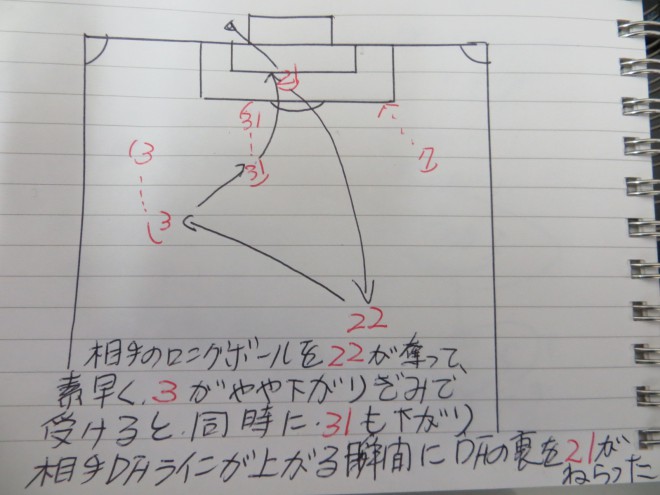 21
31
3
31
7
3
22
相手のロングボールを22が奪って、
素早く、3がやや下がりぎみで
受けると、同時に、31も下がり
相手DFラインが上がる瞬間にDFの裏を21が
ねらった